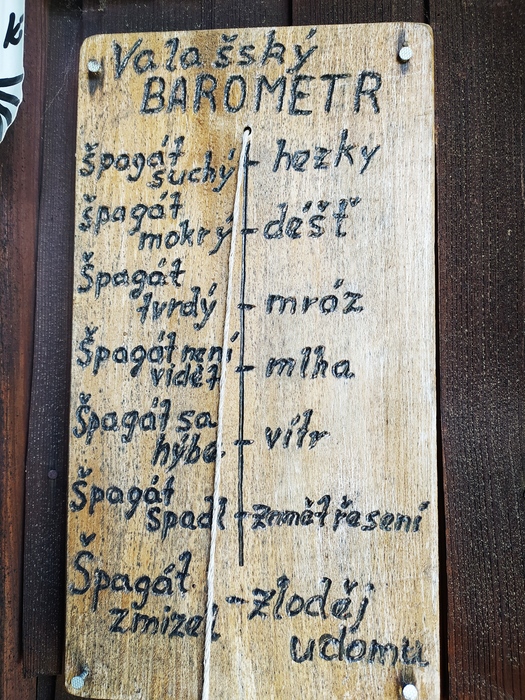 Valašský
BAROMETR
Špagát
suchý - hezky
Špagát
mokrý - déšť
Špagát
tvrdý - mróz
Špagát není
vidět - mlha
Špagát sa
hýbe - vítr
Špagát
spadl - zemětřesení
Špagát
zmizel - zloděj
udomu